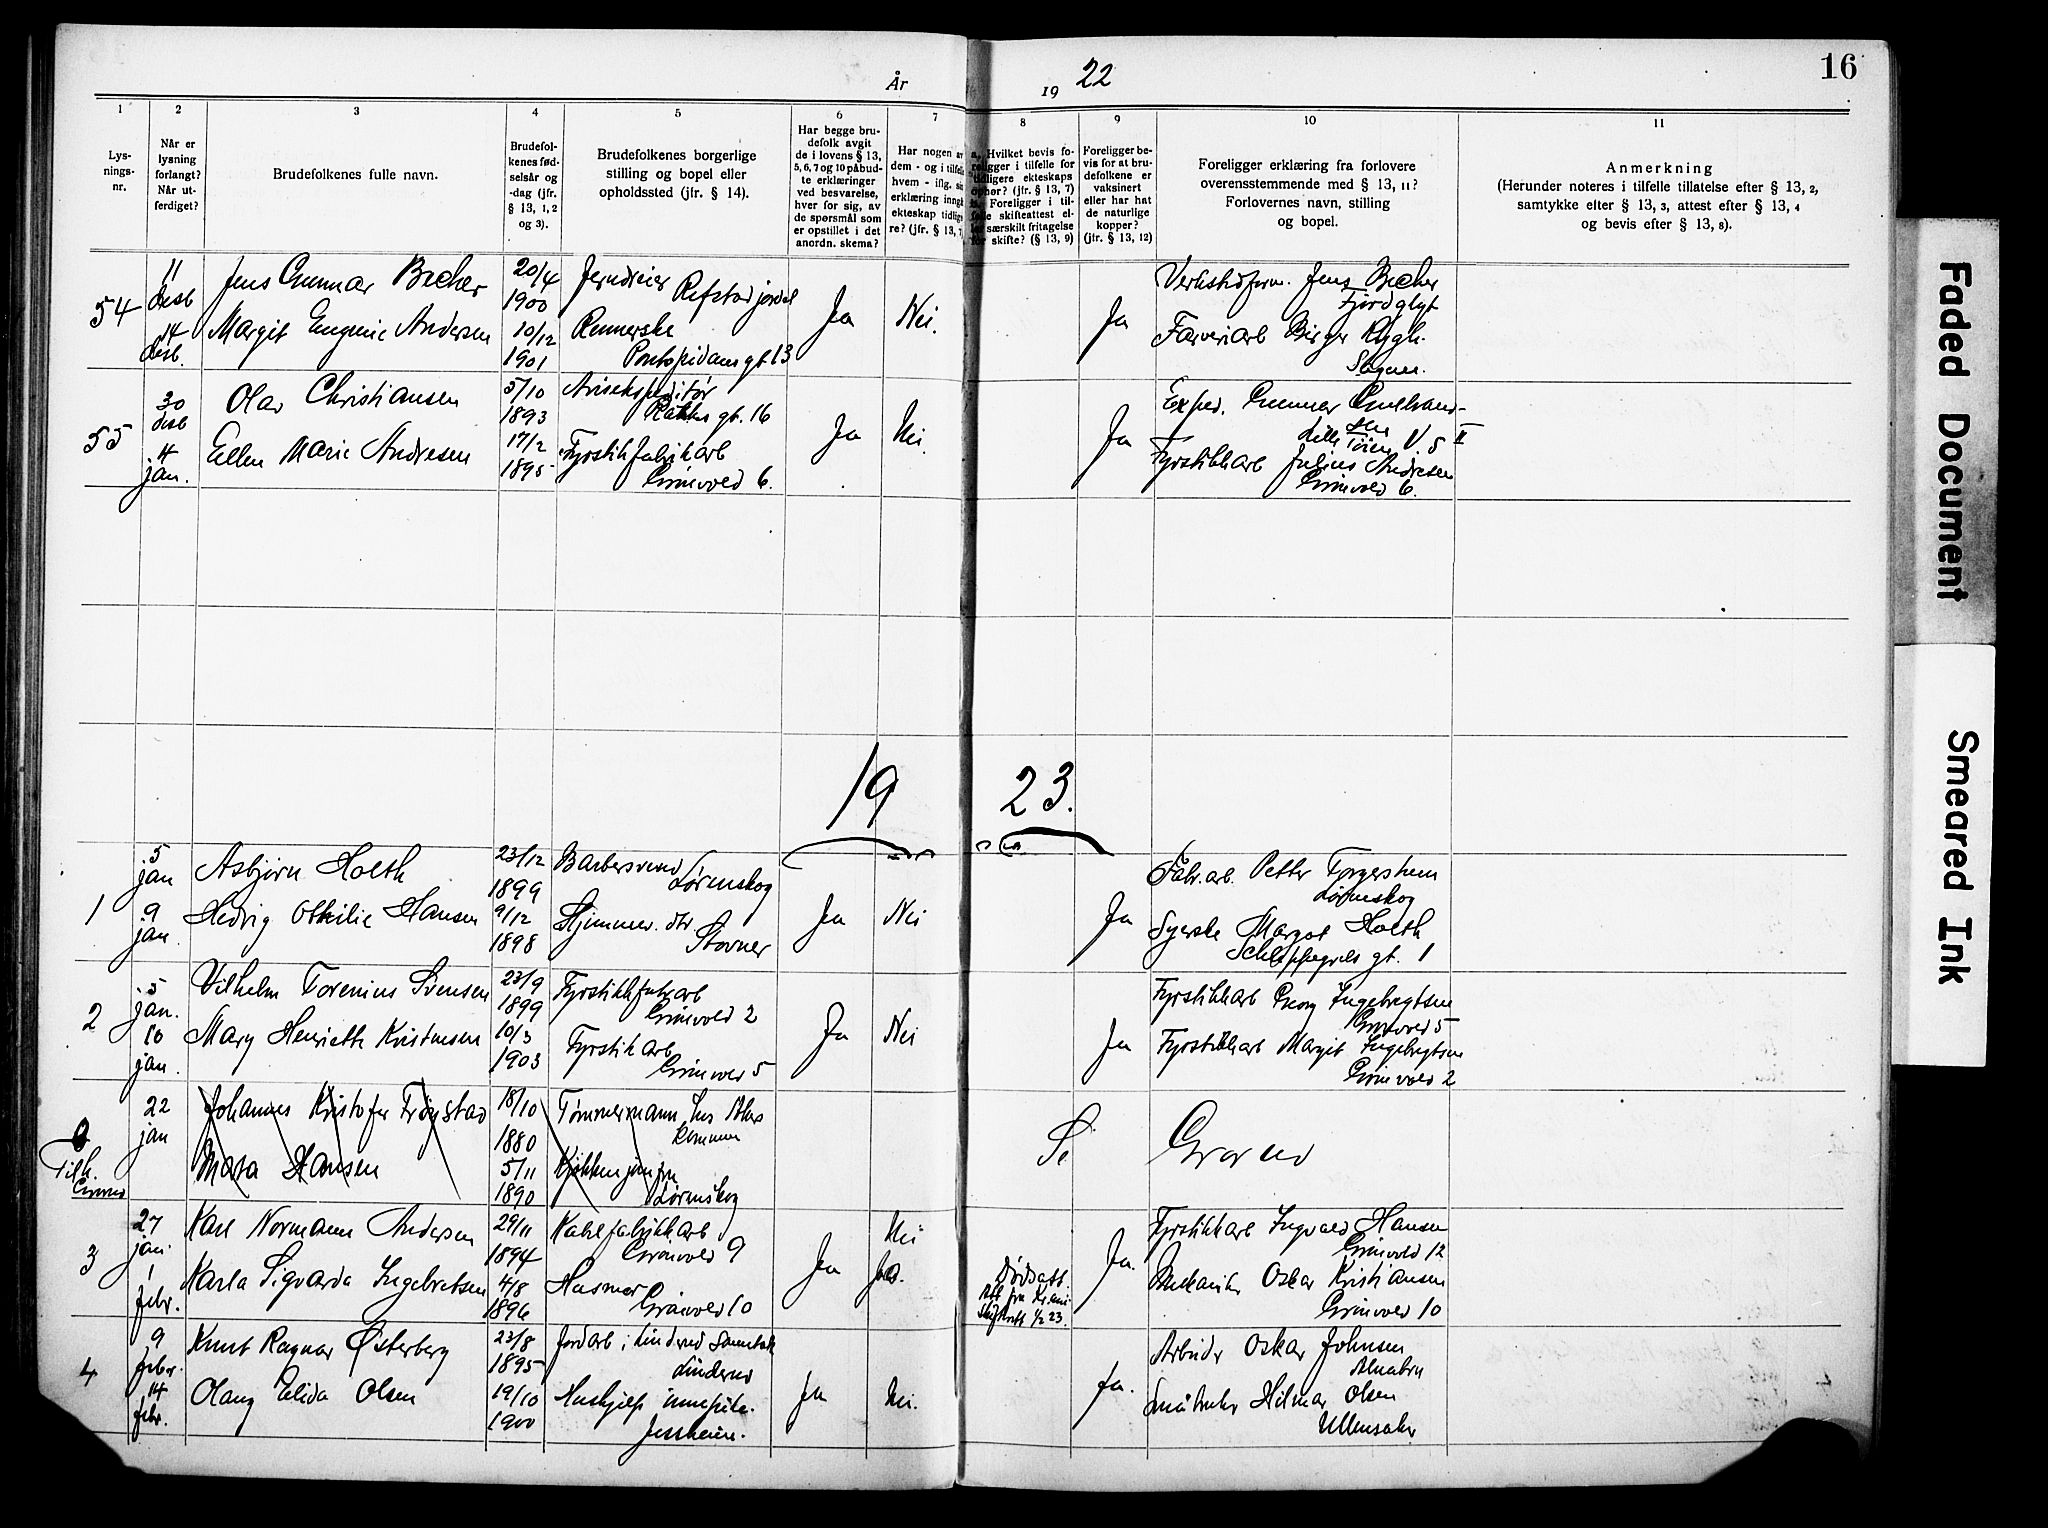 16
År 1922
1
Lys-
nings-
nr.
2
Når er
lysning
forlangt?
Når ut-
ferdiget?
3
Brudefolkenes fulle navn.
4
Brudefol-
kenes fød-
selsår og
-dag (jfr.
§ 13, 1, 2
og 3).
5
Brudefolkenes borgerlige
stilling og bopel eller
opholdssted (jfr. § 14).
6
Har begge bru-
defolk avgit
de i lovens § 13,
5, 6, 7 og 10 påbud-
te erklæringer
ved besvarelse,
hver for sig, av
de spørsmål som
er opstillet i det
anordn. skema?
7
Har nogen av
dem - og i tilfelle
hvem - iflg. sin
erklæring inngått
ekteskap tidlige-
re? (jfr. § 13, 7)
8
a. Hvilket bevis fo-
religger i tilfelle for
tidligere ekteskaps
ophør? (jfr. § 13, 7)
b. Foreligger i til-
felle skifteattest el-
ler særskilt fritagelse
for skifte? (§ 13, 9)
9
Foreligger be-
vis for at bru-
defolkene er
vaksinert
eller har hat
de naturlige
kopper?
(jfr. § 13, 12)
10
Foreligger erklæring fra forlovere
overensstemmende med § 13, 11?
Forlovernes navn, stilling
og bopel.
11
Anmerkning
(Herunder noteres i tilfelle tillatelse efter § 13, 2,
samtykke efter § 13, 3, attest efter § 13, 4
og bevis efter § 13, 8).
54
11
desb
14
desb.
Jens Gunnar Becher
Margit Eugenie Andersen
20/4
1900
10/12
1901
Jerndreier
Refstad jordet
Rennerske
Pontopidans gt. 13
Ja
Nei.
Ja
Verkstedform. Jens Becher
Fjordglyt
Farveriarb Birger Rygh.
55
30
desb
4
jan.
Olav Christiansen
Ellen Marie Andresen
5/10
1893
17/2
1895
Avisekspeditør
gt. 16
Fyrstikfabrikarb
Grinivold 6.
Ja
Nei
Ja
Exped. Gunnar
Lille Tøien V. 5 II
Fyrstikkarb Julius Andresen
Grinivold 6.
19 23.
1
5
jan
9
jan.
Asbjørn Holth
Hedvig Othilie Hansen
23/12
1899
9/12
1898
Barbersvend
Lørenskog
Hjemmev. dtr
Stovner
Ja
Nei
Ja
Fabr. arb. Petter
Lørenskog
Syerske Margot Holth
Schleppegrels gt. 1
2
5
jan.
10
jan.
Vilhelm Torenius Svensen
Mary Henriette Kristensen
23/9
1899
10/3
1903
Fyrstikkfabrarb
Grinivold 2
Fyrstikarb
Grinivold 5
Ja
Nei
Ja
Fyrstikkarb Georg Ingebregtsen
Grinivold 5
Fyrstikkarb Margit Ingebregtsen
Grinivold 2
Tilh.
Grorud
22
jan
Johannes Kristofer Trønstad
Mara Hansen
18/10
1880
5/11
1890
Tømmermann, Aker
kommune
Kjøkkenjomfru
Lørenskog
Se Grorud
3
27
jan.
1
febr.
Karl Normann Andersen
Karla Sigvarda Ingebretsen
29/11
1894
4/8
1896
Kabelfabrikkarb
Grinivold 9
Husmor
Grinivold 10
Ja
Nei
Ja.
Dødsatt.
Att fra Kr.ania
Skifterett 1/2 23.
Ja.
Fyrstikkarb Ingvald Hansen
Grinivold 12
Mekaniker Oskar Kristiansen
Grinivold 10
4
9
febr.
14
febr.
Knut Ragnar Østerberg
Olaug Elida Olsen
23/8
1895
19/10
1900
Jordarb i Linderud
Linderud
Hushjelp
Jessheim.
Ja
Nei.
Ja.
Arbeider Oskar Johnsen
Alnabru
Småbruker Hilmar Olsen
Ullensaker
Faded Document
Smeared Ink